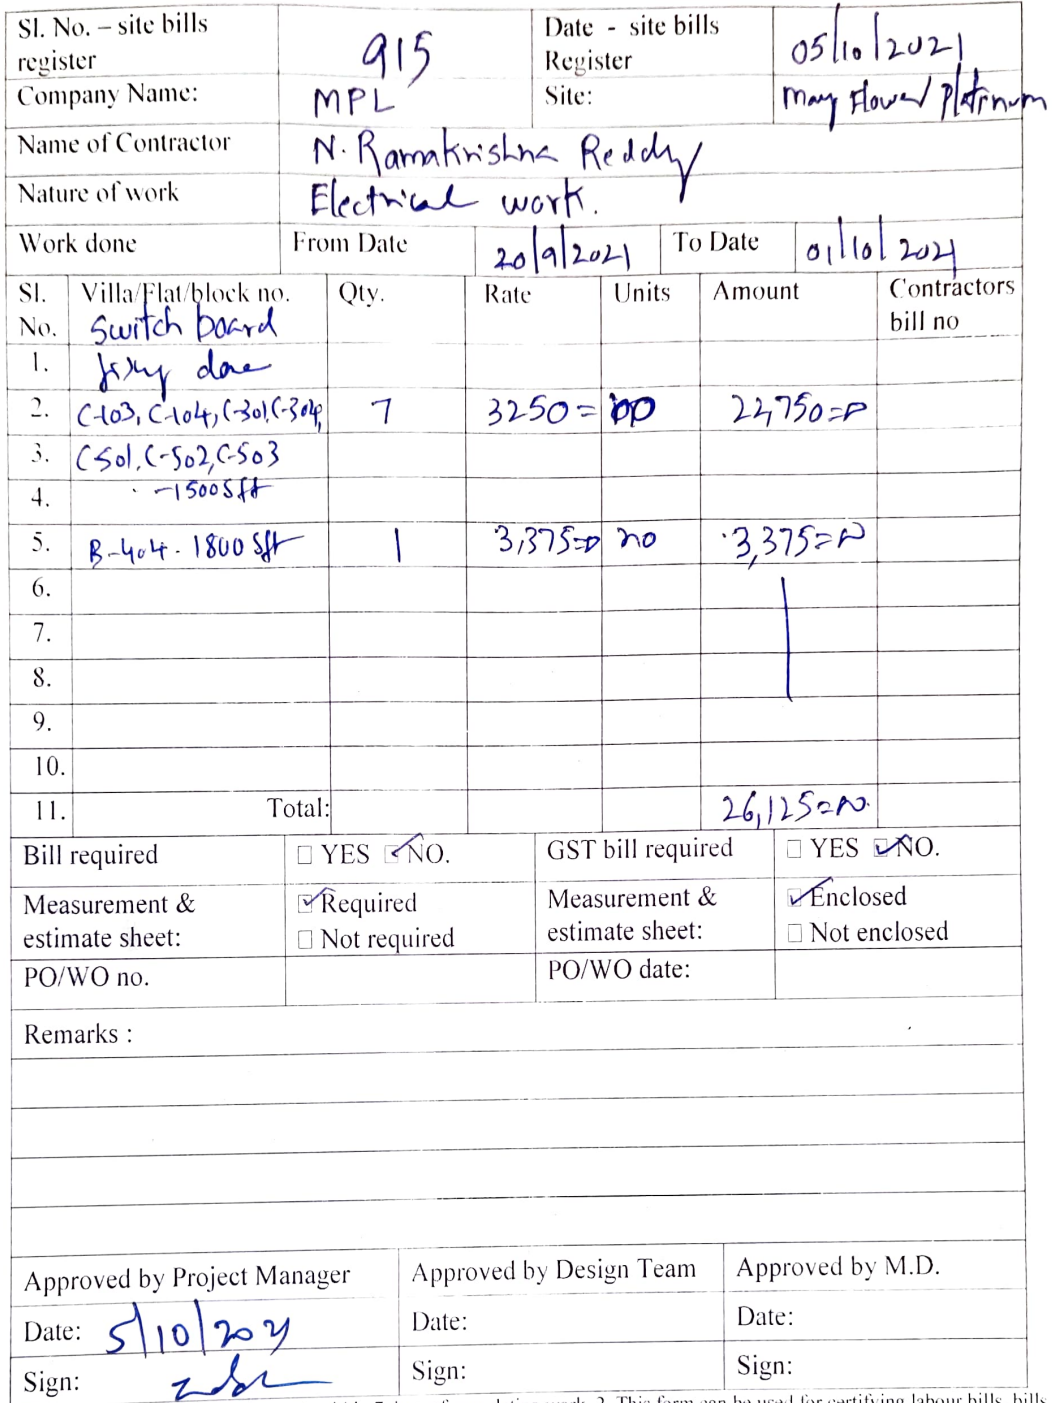 Sl. No. – site bills register 915 Date - site bills Register 05/10/2021
Company Name: MPL Site: May Flower Platinum
Name of Contractor N. Ramakrishna Reddy
Nature of work Electrical work.
Work done From Date 20/9/2021 To Date 01/10/2021
Sl. No. Villa/Flat/block no. Qty. Rate Units Amount Contractors bill no
Switch board
1. fixing done
2. C-103, C-104, C-301, C-304, 7 3250= no 22,750=
3. C-501, C-502, C-503
4. -1500 Sft
5. B-404 - 1800 Sft 1 3,375= no 3,375=
6.
7.
8.
9.
10.
11. Total: 26,125=
Bill required ☐ YES ☑ NO. GST bill required ☐ YES ☑ NO.
Measurement & estimate sheet: ☑ Required Measurement & estimate sheet: ☑ Enclosed
☐ Not required ☐ Not enclosed
PO/WO no. PO/WO date:
Remarks :
Approved by Project Manager Approved by Design Team Approved by M.D.
Date: 5/10/2021 Date: Date:
Sign: Sign: Sign:
2. This form can be used for certifying labour bills, bills